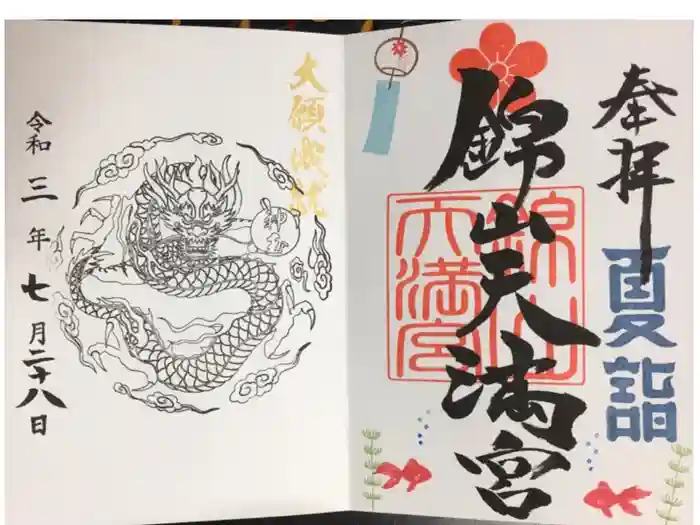 奉拝
夏詣
錦山天満宮
錦山
天満宮
大願成就
神玉
令和三年七月二十八日